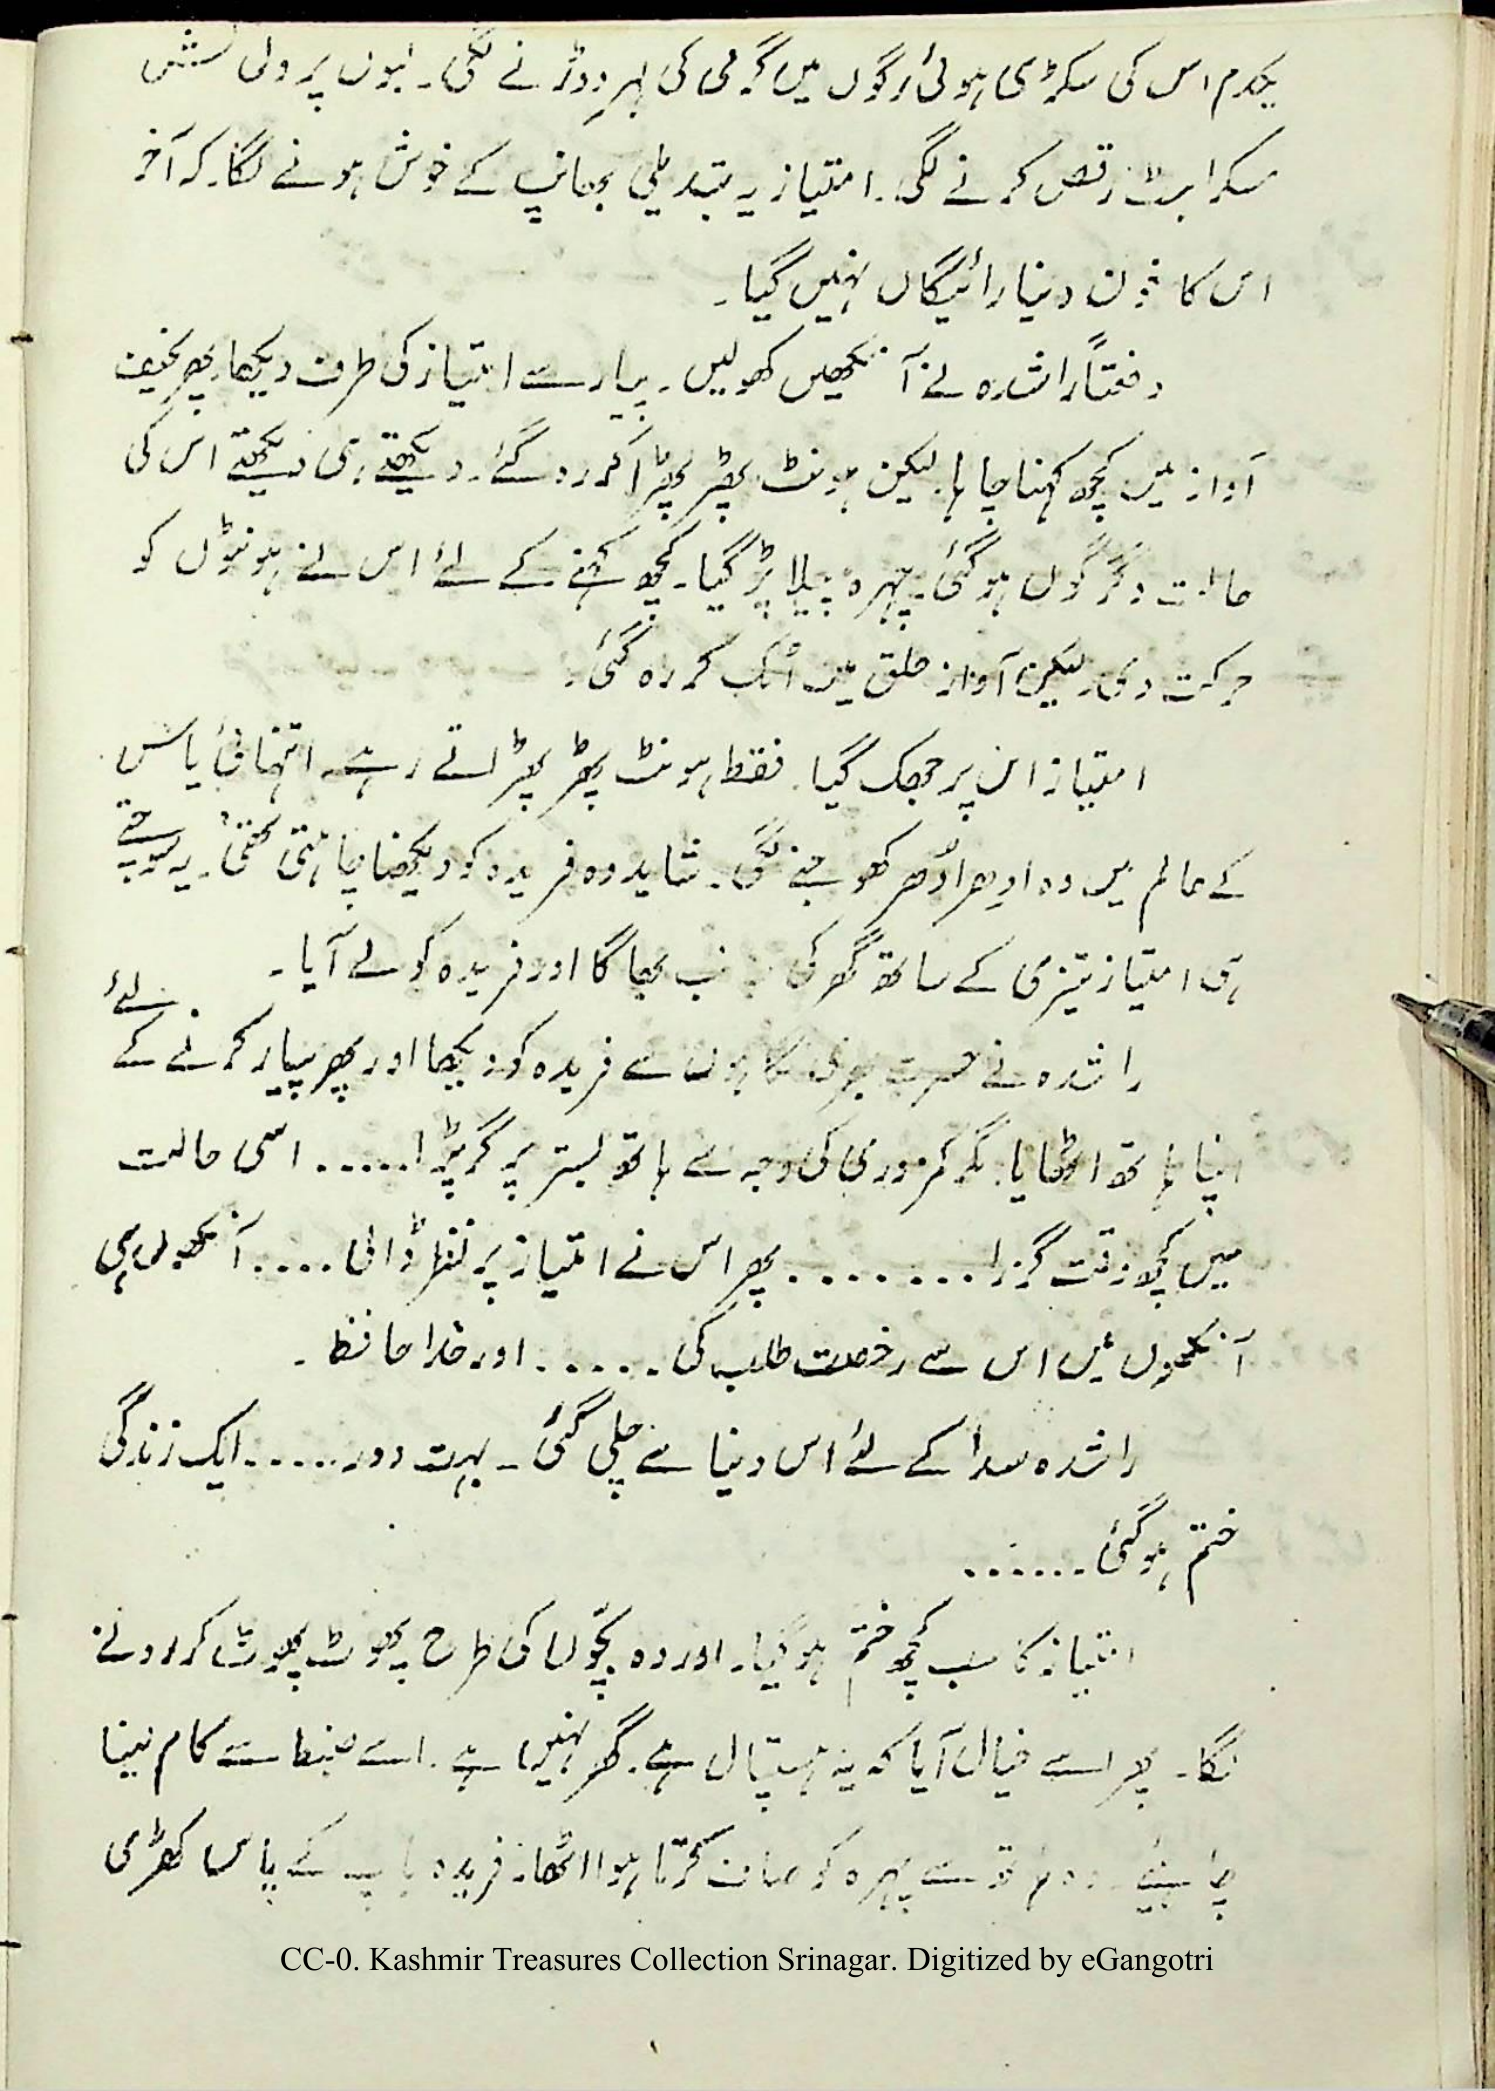 یکدم اس کی سکڑی ہوئی رگوں میں گرمی کی لہر دوڑنے لگی۔ لبوں پر دلکش
مسکراہٹ رقص کرنے لگی۔ امتیاز یہ تبدیلی بھانپ کے خوش ہونے لگا۔ کہ آخر
اس کا خون دینا رائیگاں نہیں گیا۔
دفعتاً راشدہ نے آنکھیں کھولیں۔ پیار سے امتیاز کی طرف دیکھا۔ پھر نحیف
آواز میں کچھ کہنا چاہا۔ لیکن ہونٹ پھڑ پھڑا کر رہ گئے۔ دیکھتے ہی دیکھتے اس کی
حالت دگرگوں ہوگئی۔ چہرہ پیلا پڑ گیا۔ کچھ کہنے کے لئے اس نے ہونٹوں کو
حرکت دی۔ لیکن آواز حلق میں اٹک کر رہ گئی۔
امتیاز اس پر جھک گیا۔ فقط ہونٹ پھڑ پھڑاتے رہے۔ انتہائی یاس
کے عالم میں وہ ادھر اُدھر کھوجنے لگی۔ شاید وہ فریدہ کو دیکھنا چاہتی تھی۔ یہ سوچتے
ہی امتیاز تیزی کے ساتھ گھر کی جانب بھاگا اور فریدہ کو لے آیا۔
راشدہ نے حسرت بھری نگاہوں سے فریدہ کو دیکھا اور پھر پیار کرنے کے لئے
اپنا ہاتھ اٹھایا۔ مگر کمزوری کی وجہ سے ہاتھ بستر پر گر پڑا..... اسی حالت
میں کچھ وقت گزرا ........ پھر اس نے امتیاز پر نظر ڈالی .... آنکھوں ہی
آنکھوں میں اس سے رخصت طلب کی ..... اور خدا حافظ۔
راشدہ سدا کے لئے اس دنیا سے چلی گئی۔ بہت دور ..... ایک زندگی
ختم ہوگئی ......
امتیاز کا سب کچھ ختم ہوگیا۔ اور وہ بچّوں کی طرح پھوٹ پھوٹ کر رونے
لگا۔ پھر اسے خیال آیا کہ یہ ہسپتال ہے۔ گھر نہیں ہے۔ اسے ضبط سے کام لینا
چاہیئے۔ وہ ہاتھ سے چہرہ کو صاف کرتا ہوا اٹھا۔ فریدہ باپ کے پاس کھڑی
CC-0. Kashmir Treasures Collection Srinagar. Digitized by eGangotri